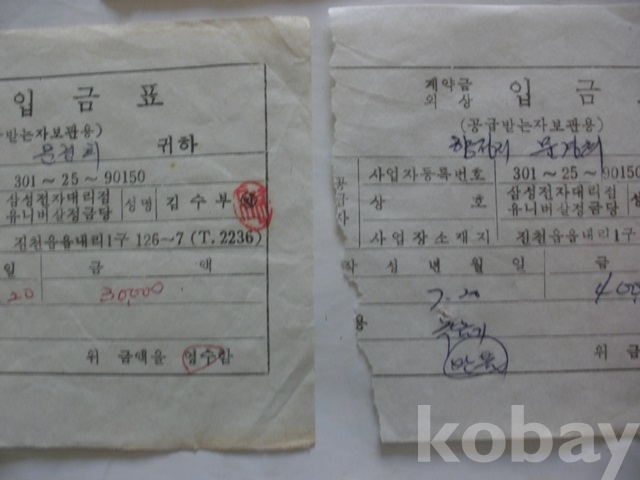 입 금 표
받는자보관용)
귀하
301 ~ 25 ~ 90150
삼성전자대리점
유니버살정금당
성명 김수부
진천읍읍내리1구 126~7 (T. 2236)
일 금 액
20 30,000
위 금액을 영수함
계약금
외 상
입 금
(공급받는자보관용)
공급자
사업자등록번호 301 ~ 25 ~ 90150
상 호
삼성전자대리점
유니버살정금당
성
사업장소재지 진천읍읍내리1구
작 성 년 월 일 금
7. 20
용
위 금
kobay